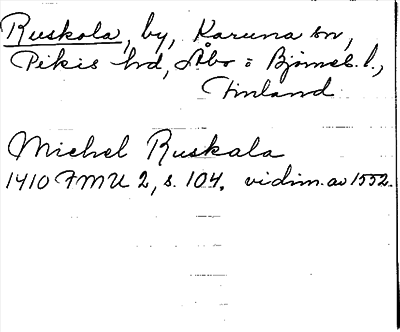 Ruskola, by, Karuna sn,
Pikis hd, Åbo o Björneb. l.,
Finland
Michel Ruskala
1410 FMU 2, s. 104. vidim. av 1552.